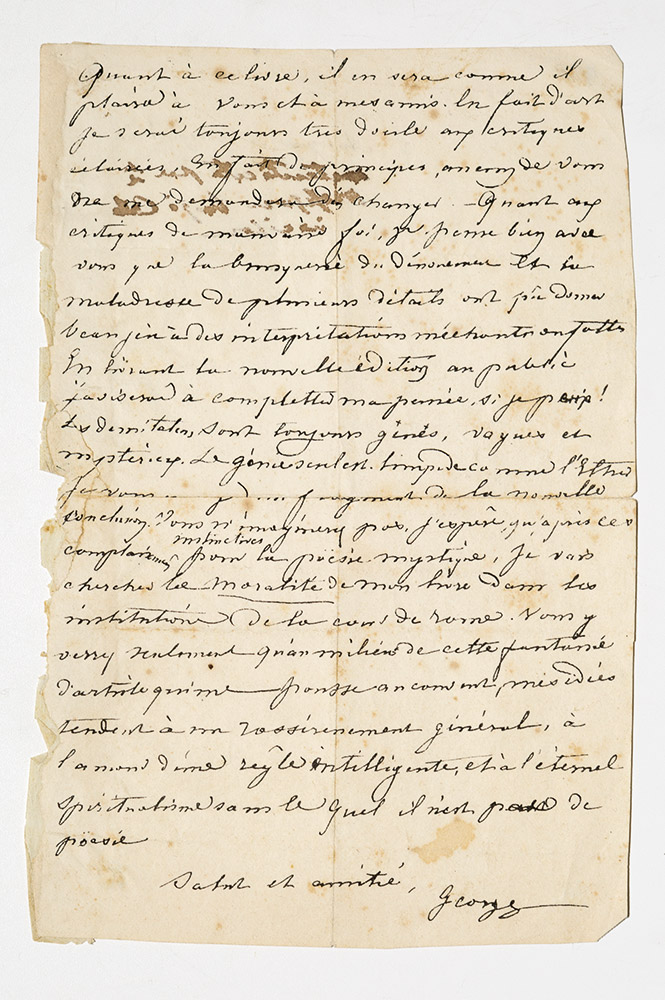 Quant à ce livre, il en sera comme il
plaira à vous et à mes amis. En fait d'art
je serai toujours très docile aux critiques
éclairées. En fait de principes, aucun de vous
ne me demandera d'en changer. Quant aux
critiques de mauvaise foi, je pense bien avec
vous que la brusquerie du dénouement et la
maladresse de plusieurs détails ont pu donner
beau jeu à des interprétations méchantes
En livrant la nouvelle édition au public
j'aviserai à completter ma pensée, si je puis!
Les demi talens sont toujours gênés, vagues et
mysterieux. Le génie seul est limpide comme l'Ether
Je vous fragment de la nouvelle
conclusion. Vous n'imaginerez pas, j'espère, qu'après ces
complaisances instinctives pour la poësie mystique, je vais
chercher la Moralité de mon livre dans les
institutions de la cour de rome. Vous y
verrez seulement qu'au milieu de cette fantaisie
d'artiste qui me pousse au couvent, mes idées
tendent à un rassérènement général, à
l'amour d'une règle intelligente, et à l'éternel
spiritualisme sans le quel il n'est pas de
poësie
Salut et amitié,
George